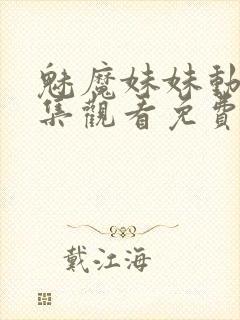 魅魔妹妹動
集觀看免費
戴江海